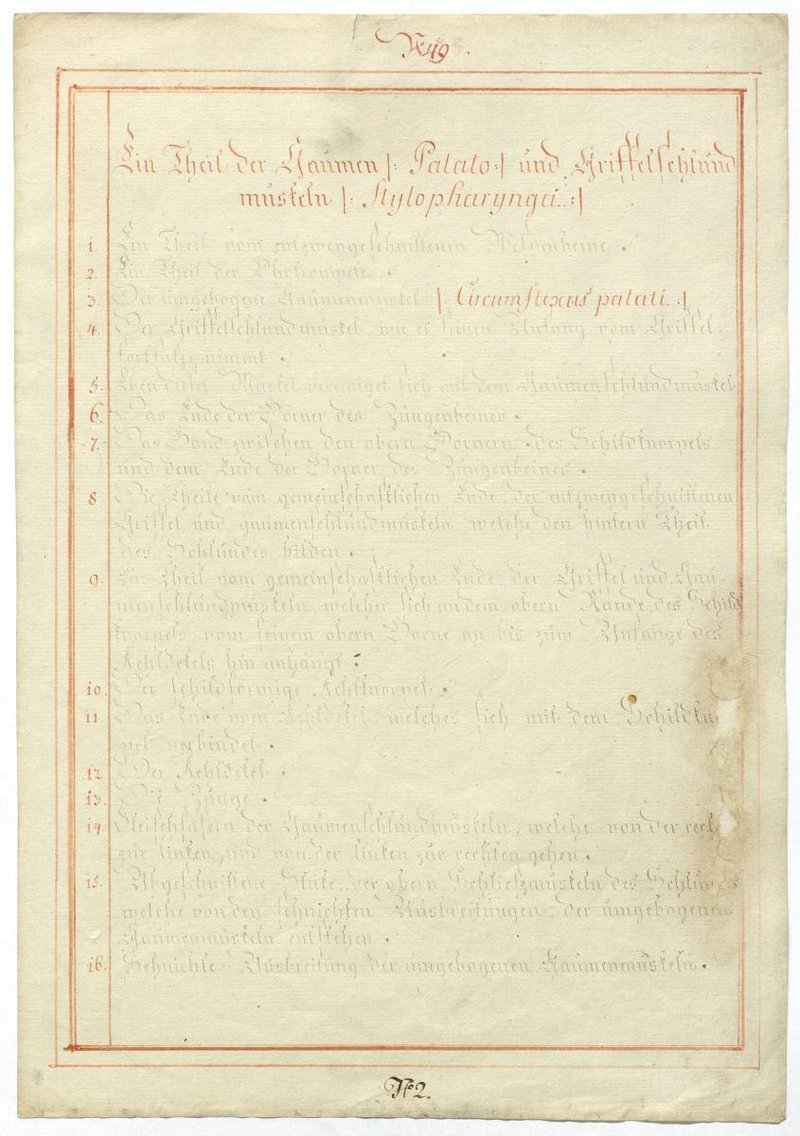 № 49.
Ein Theil der Gaumen |: Palato :| und Griffelschlund
muskeln |: Stylopharyngei. :|
1. Ein Theil vom entzweygeschnittenen Felsenbeine.
2. Ein Theil der Ohrtrompete.
3. Der umgebogene Gaumenmuskel |: Circumflexus palati. :|
4. Der Griffelschlundmuskel, wie er seinen Anfang vom Griffel-
fortsatze nimmt.
5. Eben dieser Muskel vereiniget sich mit dem Gaumenschlundmuskel
6. Das Ende der Hörner des Zungenbeines.
7. Das Band zwischen den obern Hörnern des Schildknorpels,
und dem Ende der Hörner des Zungenbeines.
8 Die Theile vom gemeinschaftlichen Ende der entzweygeschnittenen
Griffel und gaumenschlundmuskeln welche den hintern Theil
des Schlundes bilden.
9. Ein Theil vom gemeinschaftlichen Ende der Griffel und Gau-
menschlundmuskeln, welcher sich an dem obern Rande des Schild
knorpels, vom seinem obern Horne an bis zum Anfange des
Kehldekels hin anhängt.
10. Der schildförmige Kehlknorpel.
11. Das Ende vom Kehldekel, welches sich mit dem Schildkn
pel verbindet.
12 Der Kehldekel.
13. Die Zunge.
14. Fleischfasern der Gaumenschlundmuskeln, welche von der rech
zur linken, und von der linken zur rechten gehen.
15. Abgeschnittene Stüke der obern Schließmuskeln des Schlundes
welche von den sehnichten Ausbreitungen der umgebogenen
Gaumenmuskeln entstehen.
16. Sehnichte Ausbreitung der umgebogenen Gaumenmuskeln.
№ 2.